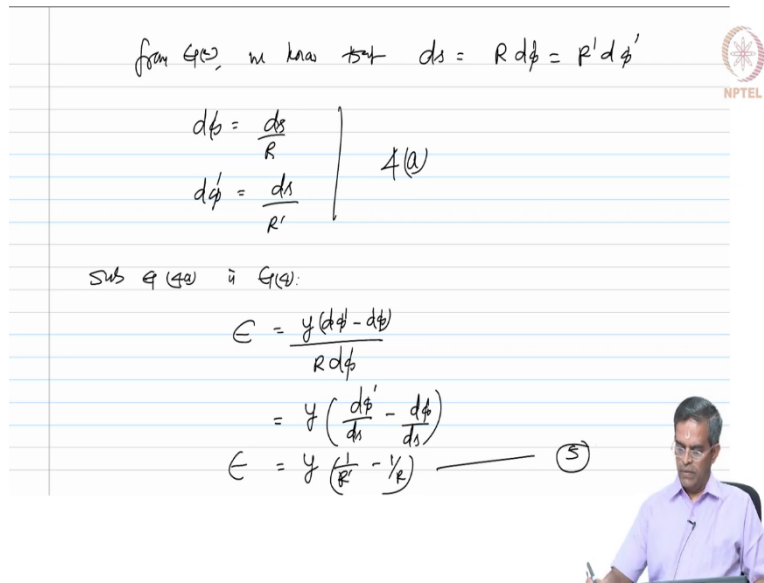 from Eq(3), we know that ds = R dϕ = R' dϕ'
NPTEL
dϕ = ds/R
dϕ' = ds/R'
4(a)
Sub Eq (4a) in Eq(4):
ϵ = y(dϕ' - dϕ) / R dϕ
= y (dϕ'/ds - dϕ/ds)
ϵ = y (1/R' - 1/R) ——— (5)